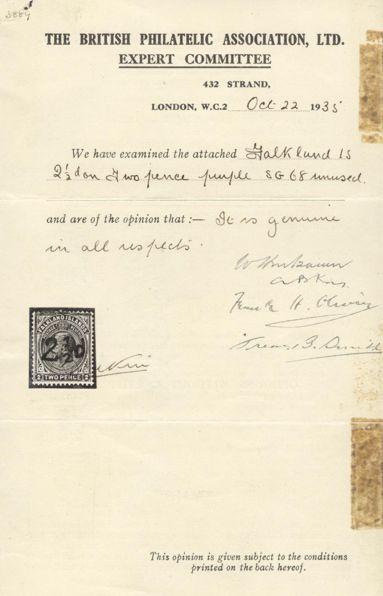 THE BRITISH PHILATELIC ASSOCIATION, LTD.
EXPERT COMMITTEE
432 STRAND,
LONDON, W.C.2 Oct 22 1935
We have examined the attached Falkland Is
2½d on Two pence purple SG 68 unused.
and are of the opinion that :— It is genuine
in all respects.
FALKLAND ISLANDS
2½d
2 TWO PENCE 2
This opinion is given subject to the conditions
printed on the back hereof.